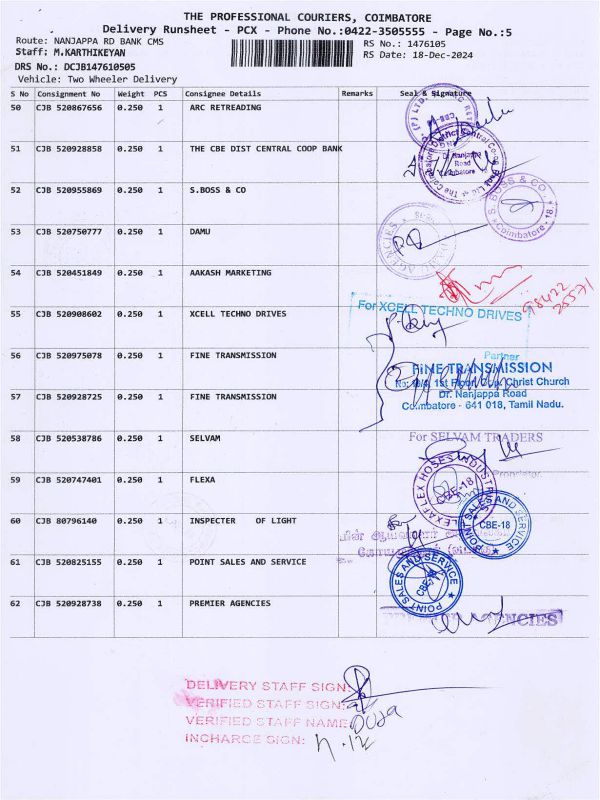 THE PROFESSIONAL COURIERS, COIMBATORE
Delivery Runsheet - PCX - Phone No.:0422-3505555 - Page No.:5
Route: NANJAPPA RD BANK CMS
RS No.: 1476105
Staff: M.KARTHIKEYAN
RS Date: 18-Dec-2024
DRS No.: DCJB147610505
Vehicle: Two Wheeler Delivery
S No Consignment No Weight PCS Consignee Details Remarks Seal & Signature
50 CJB 520867656 0.250 1 ARC RETREADING
51 CJB 520928858 0.250 1 THE CBE DIST CENTRAL COOP BANK
Nanjappa
Road
Coimbatore
52 CJB 520955869 0.250 1 S.BOSS & CO
S. BOSS & CO.
Coimbatore - 18.
53 CJB 520750777 0.250 1 DAMU
54 CJB 520451849 0.250 1 AAKASH MARKETING
98422
25571
55 CJB 520908602 0.250 1 XCELL TECHNO DRIVES
For XCELL TECHNO DRIVES
Partner
56 CJB 520975078 0.250 1 FINE TRANSMISSION
FINE TRANSMISSION
1st Floor, Christ Church
Dr. Nanjappa Road
Coimbatore - 641 018, Tamil Nadu.
57 CJB 520928725 0.250 1 FINE TRANSMISSION
58 CJB 520538786 0.250 1 SELVAM
For SELVAM TRADERS
Proprietor
59 CJB 520747401 0.250 1 FLEXA
CBE-18
60 CJB 80796140 0.250 1 INSPECTER OF LIGHT
POINT SALES AND SERVICE
CBE-18
61 CJB 520825155 0.250 1 POINT SALES AND SERVICE
POINT SALES AND SERVICE
CBE-18
62 CJB 520928738 0.250 1 PREMIER AGENCIES
AGENCIES
DELIVERY STAFF SIGN:
VERIFIED STAFF SIGN:
VERIFIED STAFF NAME:
INCHARGE SIGN: